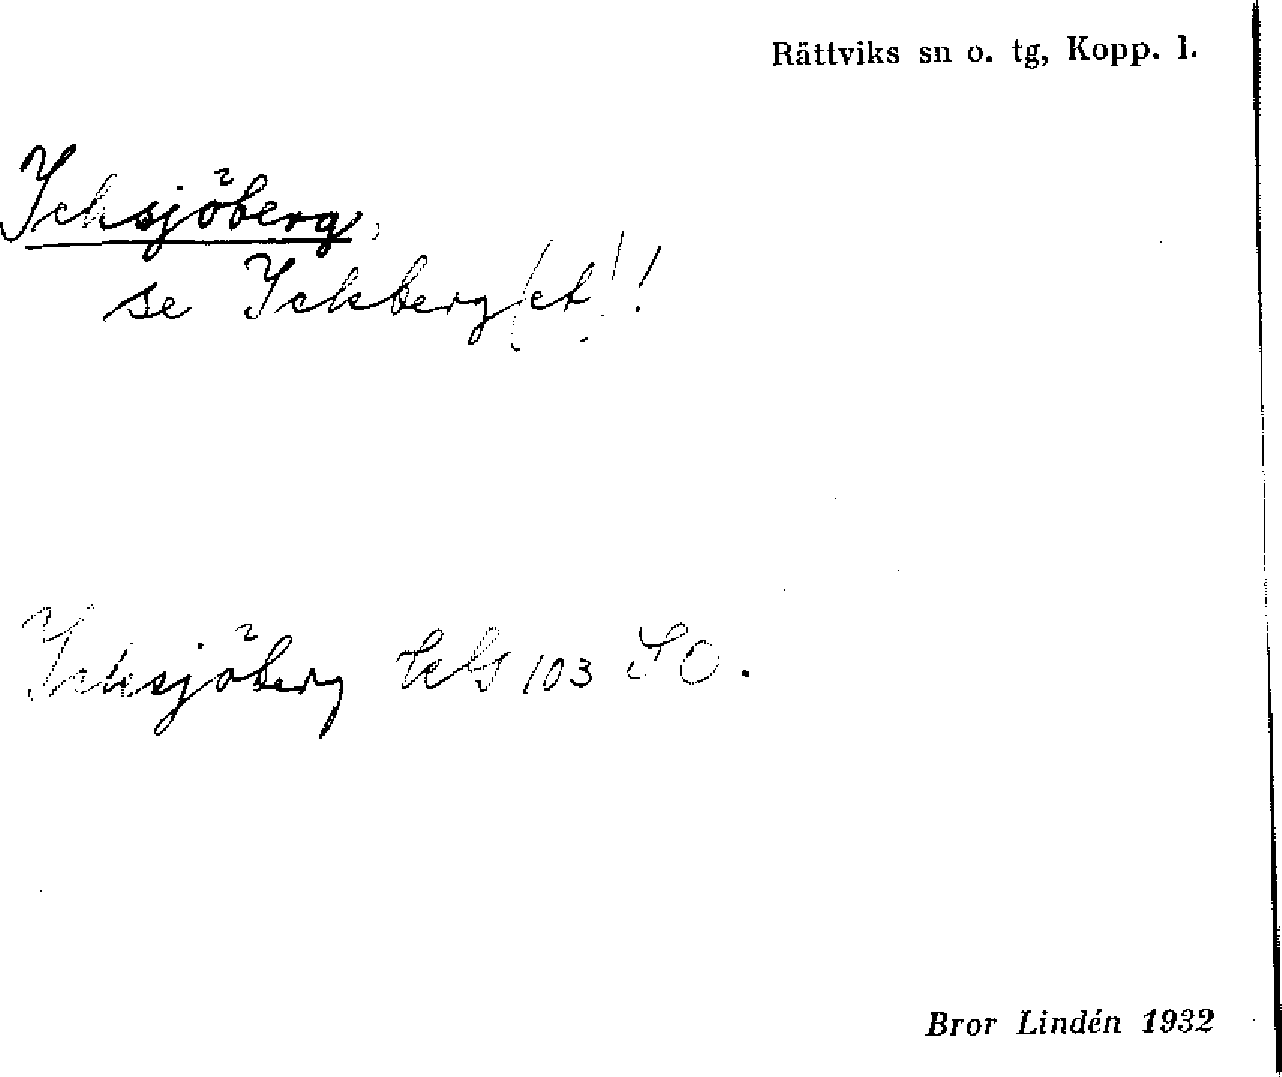 Rättviks sn o. tg, Kopp. l.
Icksjöberg,
se Ickberg(et)!
Icksjöberg 103 SO.
Bror Lindén 1932